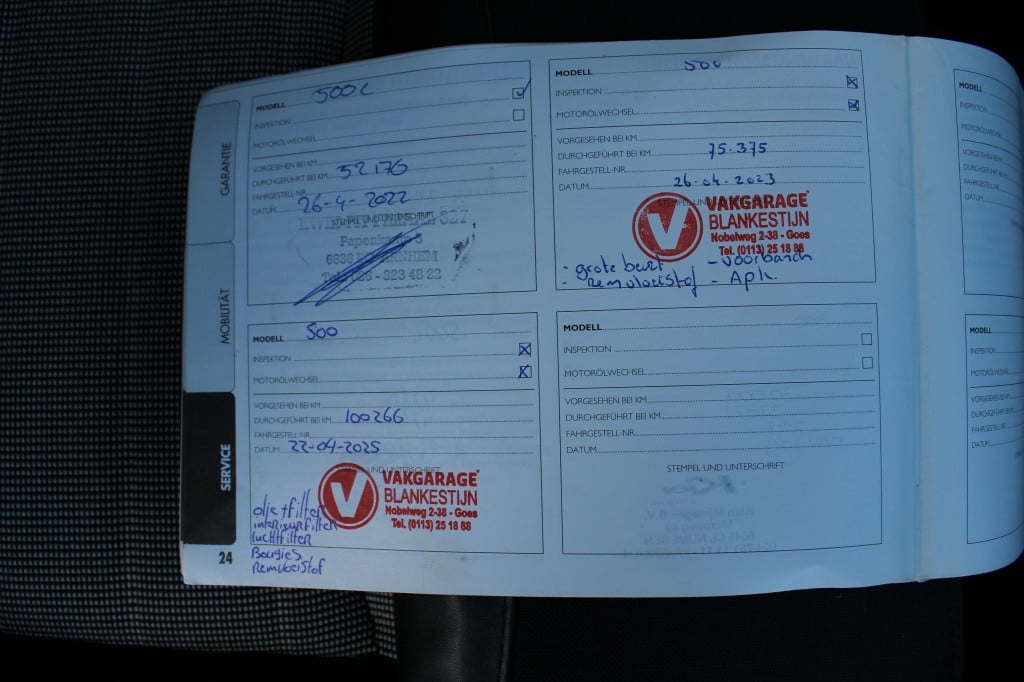 GARANTIE
MOBILITÄT
SERVICE
24
MODELL 500L
INSPEKTION
MOTORÖLWECHSEL
VORGESEHEN BEI KM
DURCHGEFÜHRT BEI KM 52176
FAHRGESTELL-NR.
DATUM 26-4-2022
STEMPEL UND UNTERSCHRIFT
Papenkamp
MODELL 500
INSPEKTION
MOTORÖLWECHSEL
VORGESEHEN BEI KM
DURCHGEFÜHRT BEI KM 75.375
FAHRGESTELL-NR.
DATUM 26-04-2023
STEMPEL UND UNTERSCHRIFT
VAKGARAGE
BLANKESTIJN
Nobelweg 2-38 - Goes
Tel. (0113) 25 18 88
- grote beurt - voorbanden
- Remvloeistof - Apk.
MODELL 500
INSPEKTION
MOTORÖLWECHSEL
VORGESEHEN BEI KM
DURCHGEFÜHRT BEI KM 100266
FAHRGESTELL-NR.
DATUM 22-04-2025
STEMPEL UND UNTERSCHRIFT
VAKGARAGE
BLANKESTIJN
Nobelweg 2-38 - Goes
Tel. (0113) 25 18 88
olie+filter
interieurfilter
luchtfilter
Bougies
Remvloeistof
MODELL
INSPEKTION
MOTORÖLWECHSEL
VORGESEHEN BEI KM
DURCHGEFÜHRT BEI KM
FAHRGESTELL-NR.
DATUM
STEMPEL UND UNTERSCHRIFT
MODELL
INSPEKTION
MOTORÖLWECHSEL
VORGESEHEN BEI
DURCHGEFÜHRT
FAHRGESTELL-NR
DATUM
MODELL
INSPEKTION
MOTORÖLWECHSEL
VORGESEHEN BEI KM
DURCHGEFÜHRT
FAHRGESTELL-NR
DATUM